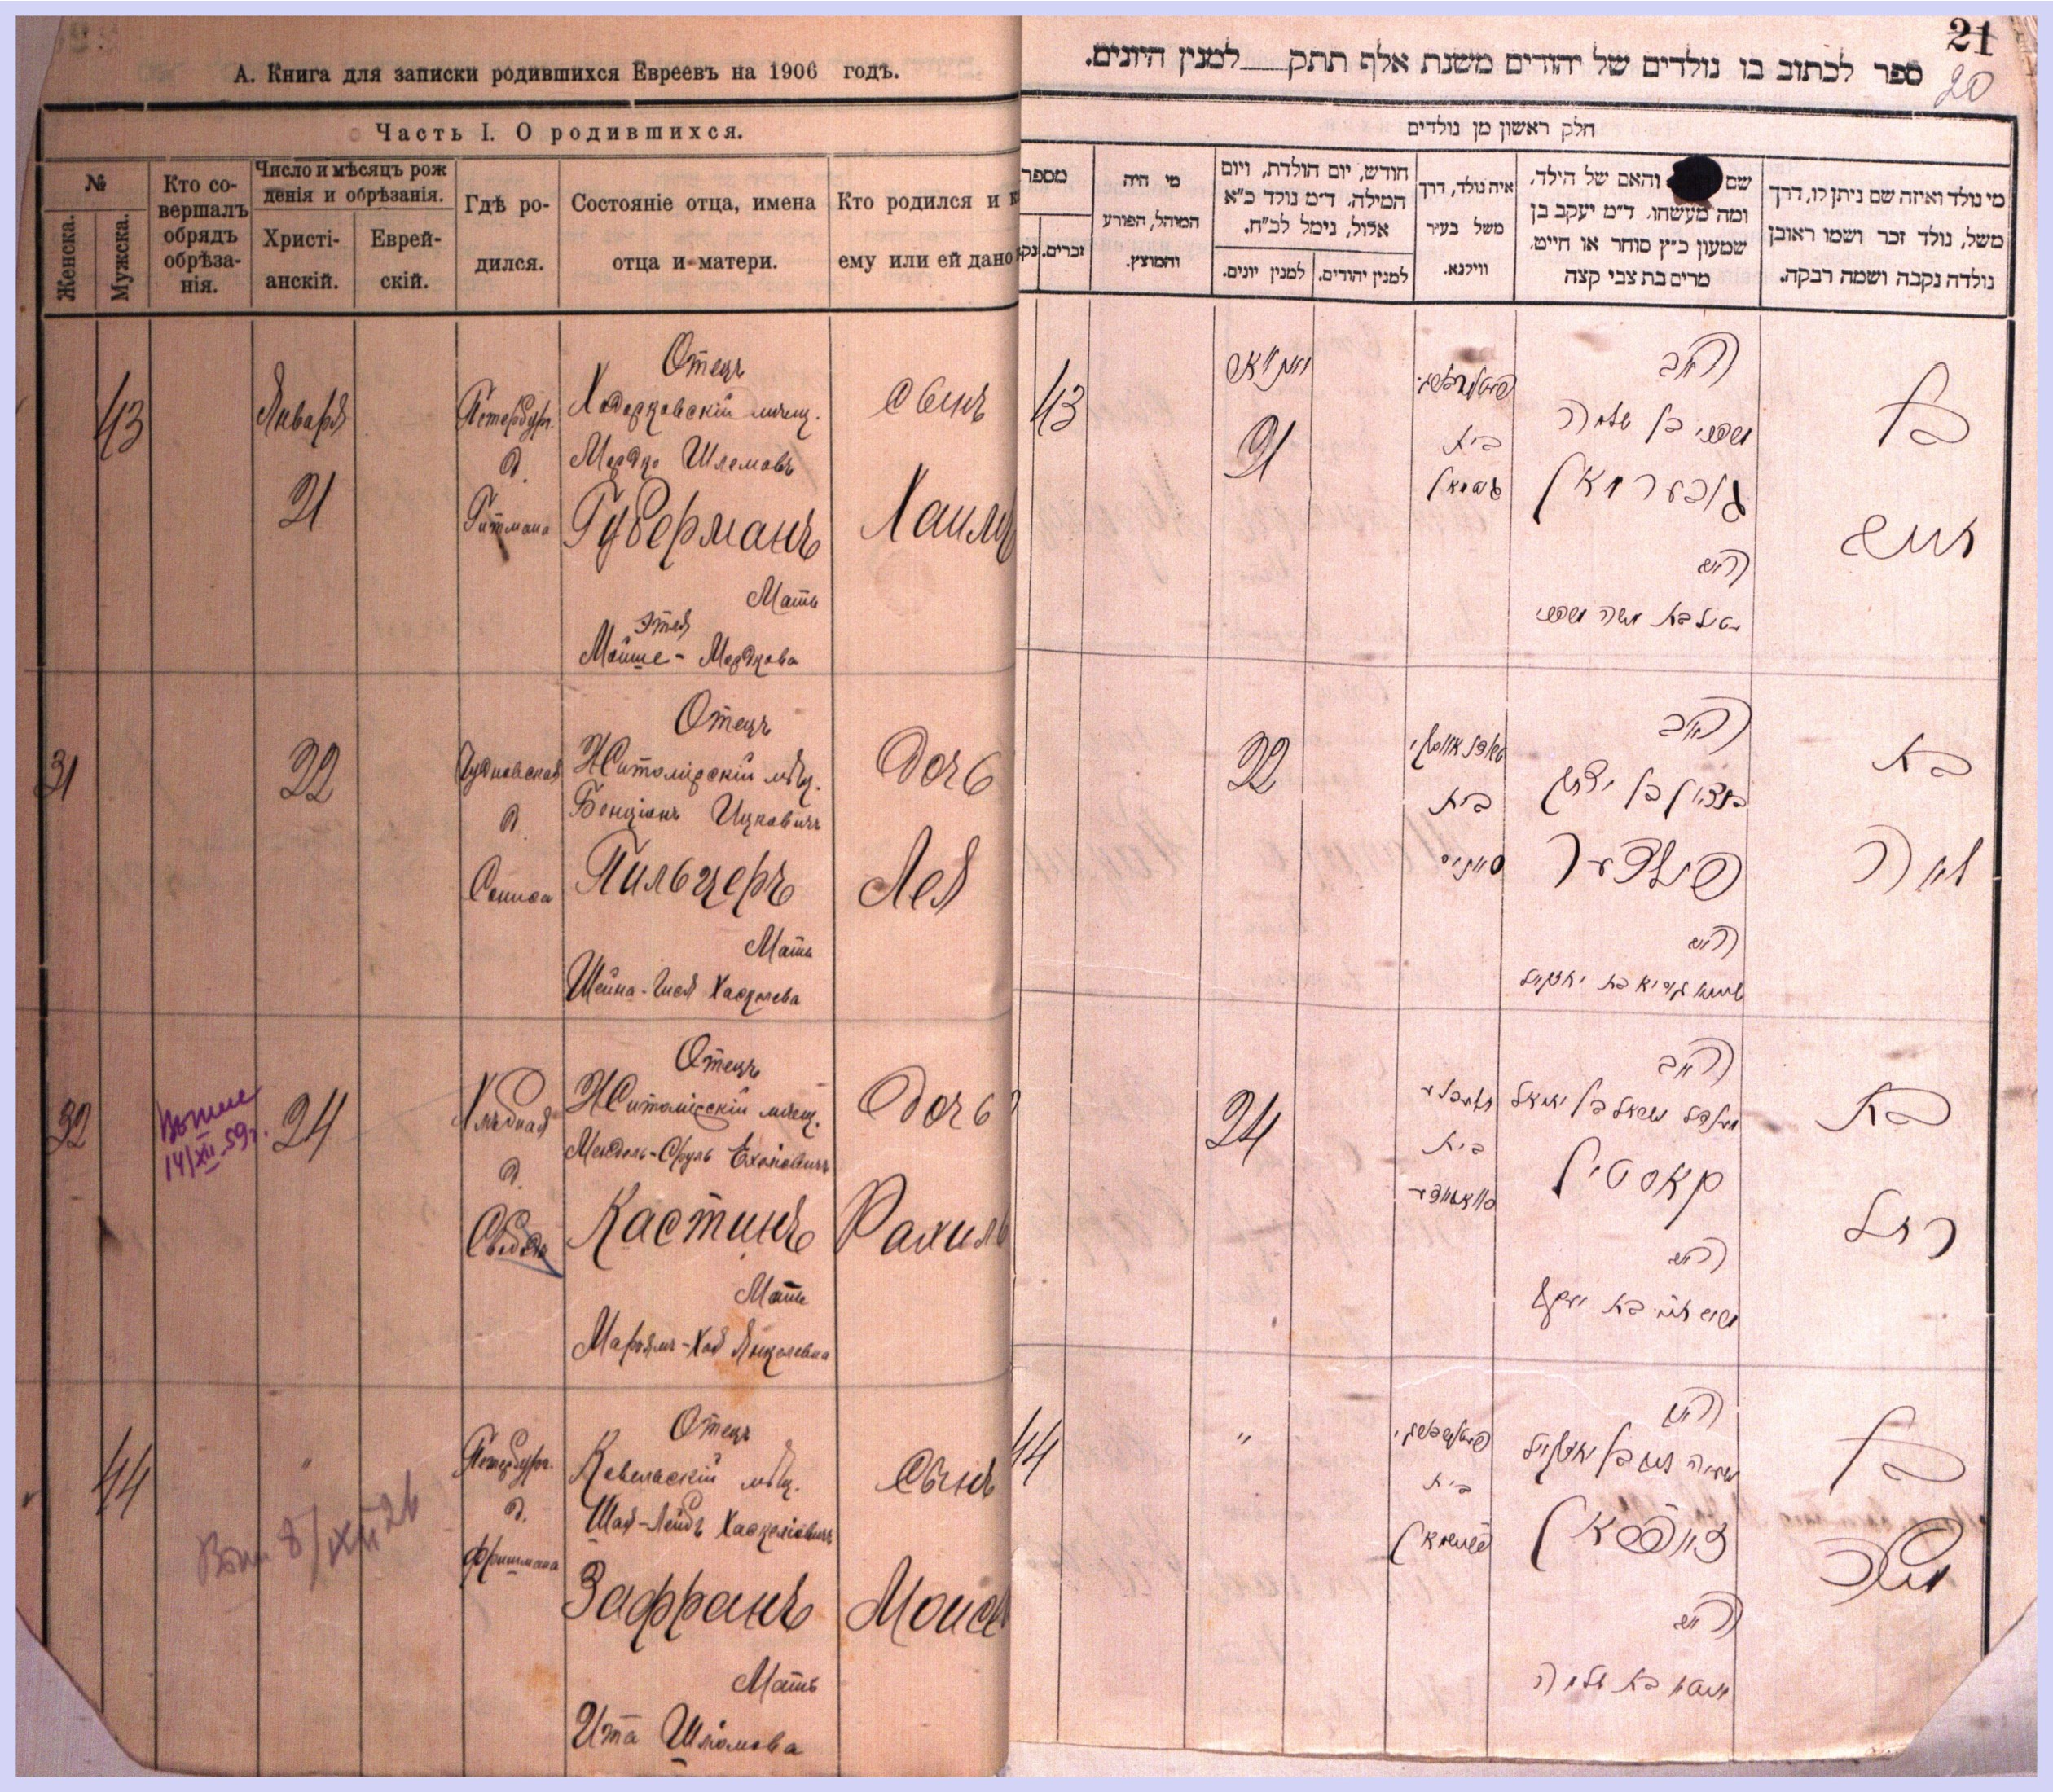 А. Книга для записки родившихся Евреевъ на 1906 годъ.
Часть I. О родившихся.
№
Женска.
Мужска.
Кто со-
вершалъ
обрядъ
обрѣза-
нія.
Число и мѣсяцъ рож
денія и обрѣзанія.
Христі-
анскій.
Еврей-
скій.
Гдѣ ро-
дился.
Состояніе отца, имена
отца и матери.
Кто родился и к
ему или ей дано
43
Января
21
Петербург.
д.
Гитмана
Отецъ
Ходорковскій мѣщ.
Мордко Шлемовъ
Губерманъ
Мать
Этля
Мойше- Мордкова
Сынъ
Хаимъ
31
22
Чудновская
д.
Отецъ
Житомірскій мѣщ.
Бенціонъ Ицковичъ
Пильцеръ
Мать
Шейна-
Дочь
Лея
32
14/XII-59г.
24
д.
Отецъ
Житомірскій мѣщ.
Мендель-Сруль
Кастинъ
Мать
Марьямъ-Хая Янкелевна
Дочь
Рахиль
44
"
8/XII 26
Петербург.
д.
Фришмана
Отецъ
Ковельскій мѣщ.
Шая-Лейбъ Хаскеліовичъ
Зафранъ
Мать
Ита Шліомова
Сынъ
Моисей
21
20
ספר לכתוב בו נולדים של יהודים משנת אלף תתק למנין היונים.
חלק ראשון מן נולדים
מי נולד ואיזה שם ניתן לו, דרך
משל, נולד זכר ושמו ראובן
נולדה נקבה ושמה רבקה.
שם והאם של הילד,
ומה מעשהו. ד״מ יעקב בן
שמעון כ״ץ סוחר או חייט,
מרים בת צבי קצה
איה נולד, דרך
משל בעיר
ווילנא.
חודש, יום הולדת, ויום
המילה. ד״מ נולד כ״א
אלול, נימל לכ״ח.
למנין יהודים.
למנין יונים.
מי היה
המוהל, הפורע
והמוצץ.
מספר
זכרים.
נק
בן
חיים
האב
מרדכי בן שלמה
גובערמאן
האם
בת משה מרדכי
בית
יאנואר
21
43
בת
לאה
האב
בנציון בן יצחק
פילצער
האם
בת יחזקאל
בית
22
בת
רחל
האב
מענדל ישראל בן
קאסטין
האם
מרים חיה בת יעקב
בית
24
בן
משה
ישעיה ליב בן יחזקאל
זאפראן
האם
איטא בת שלמה
בית
פרישמאן
"
44